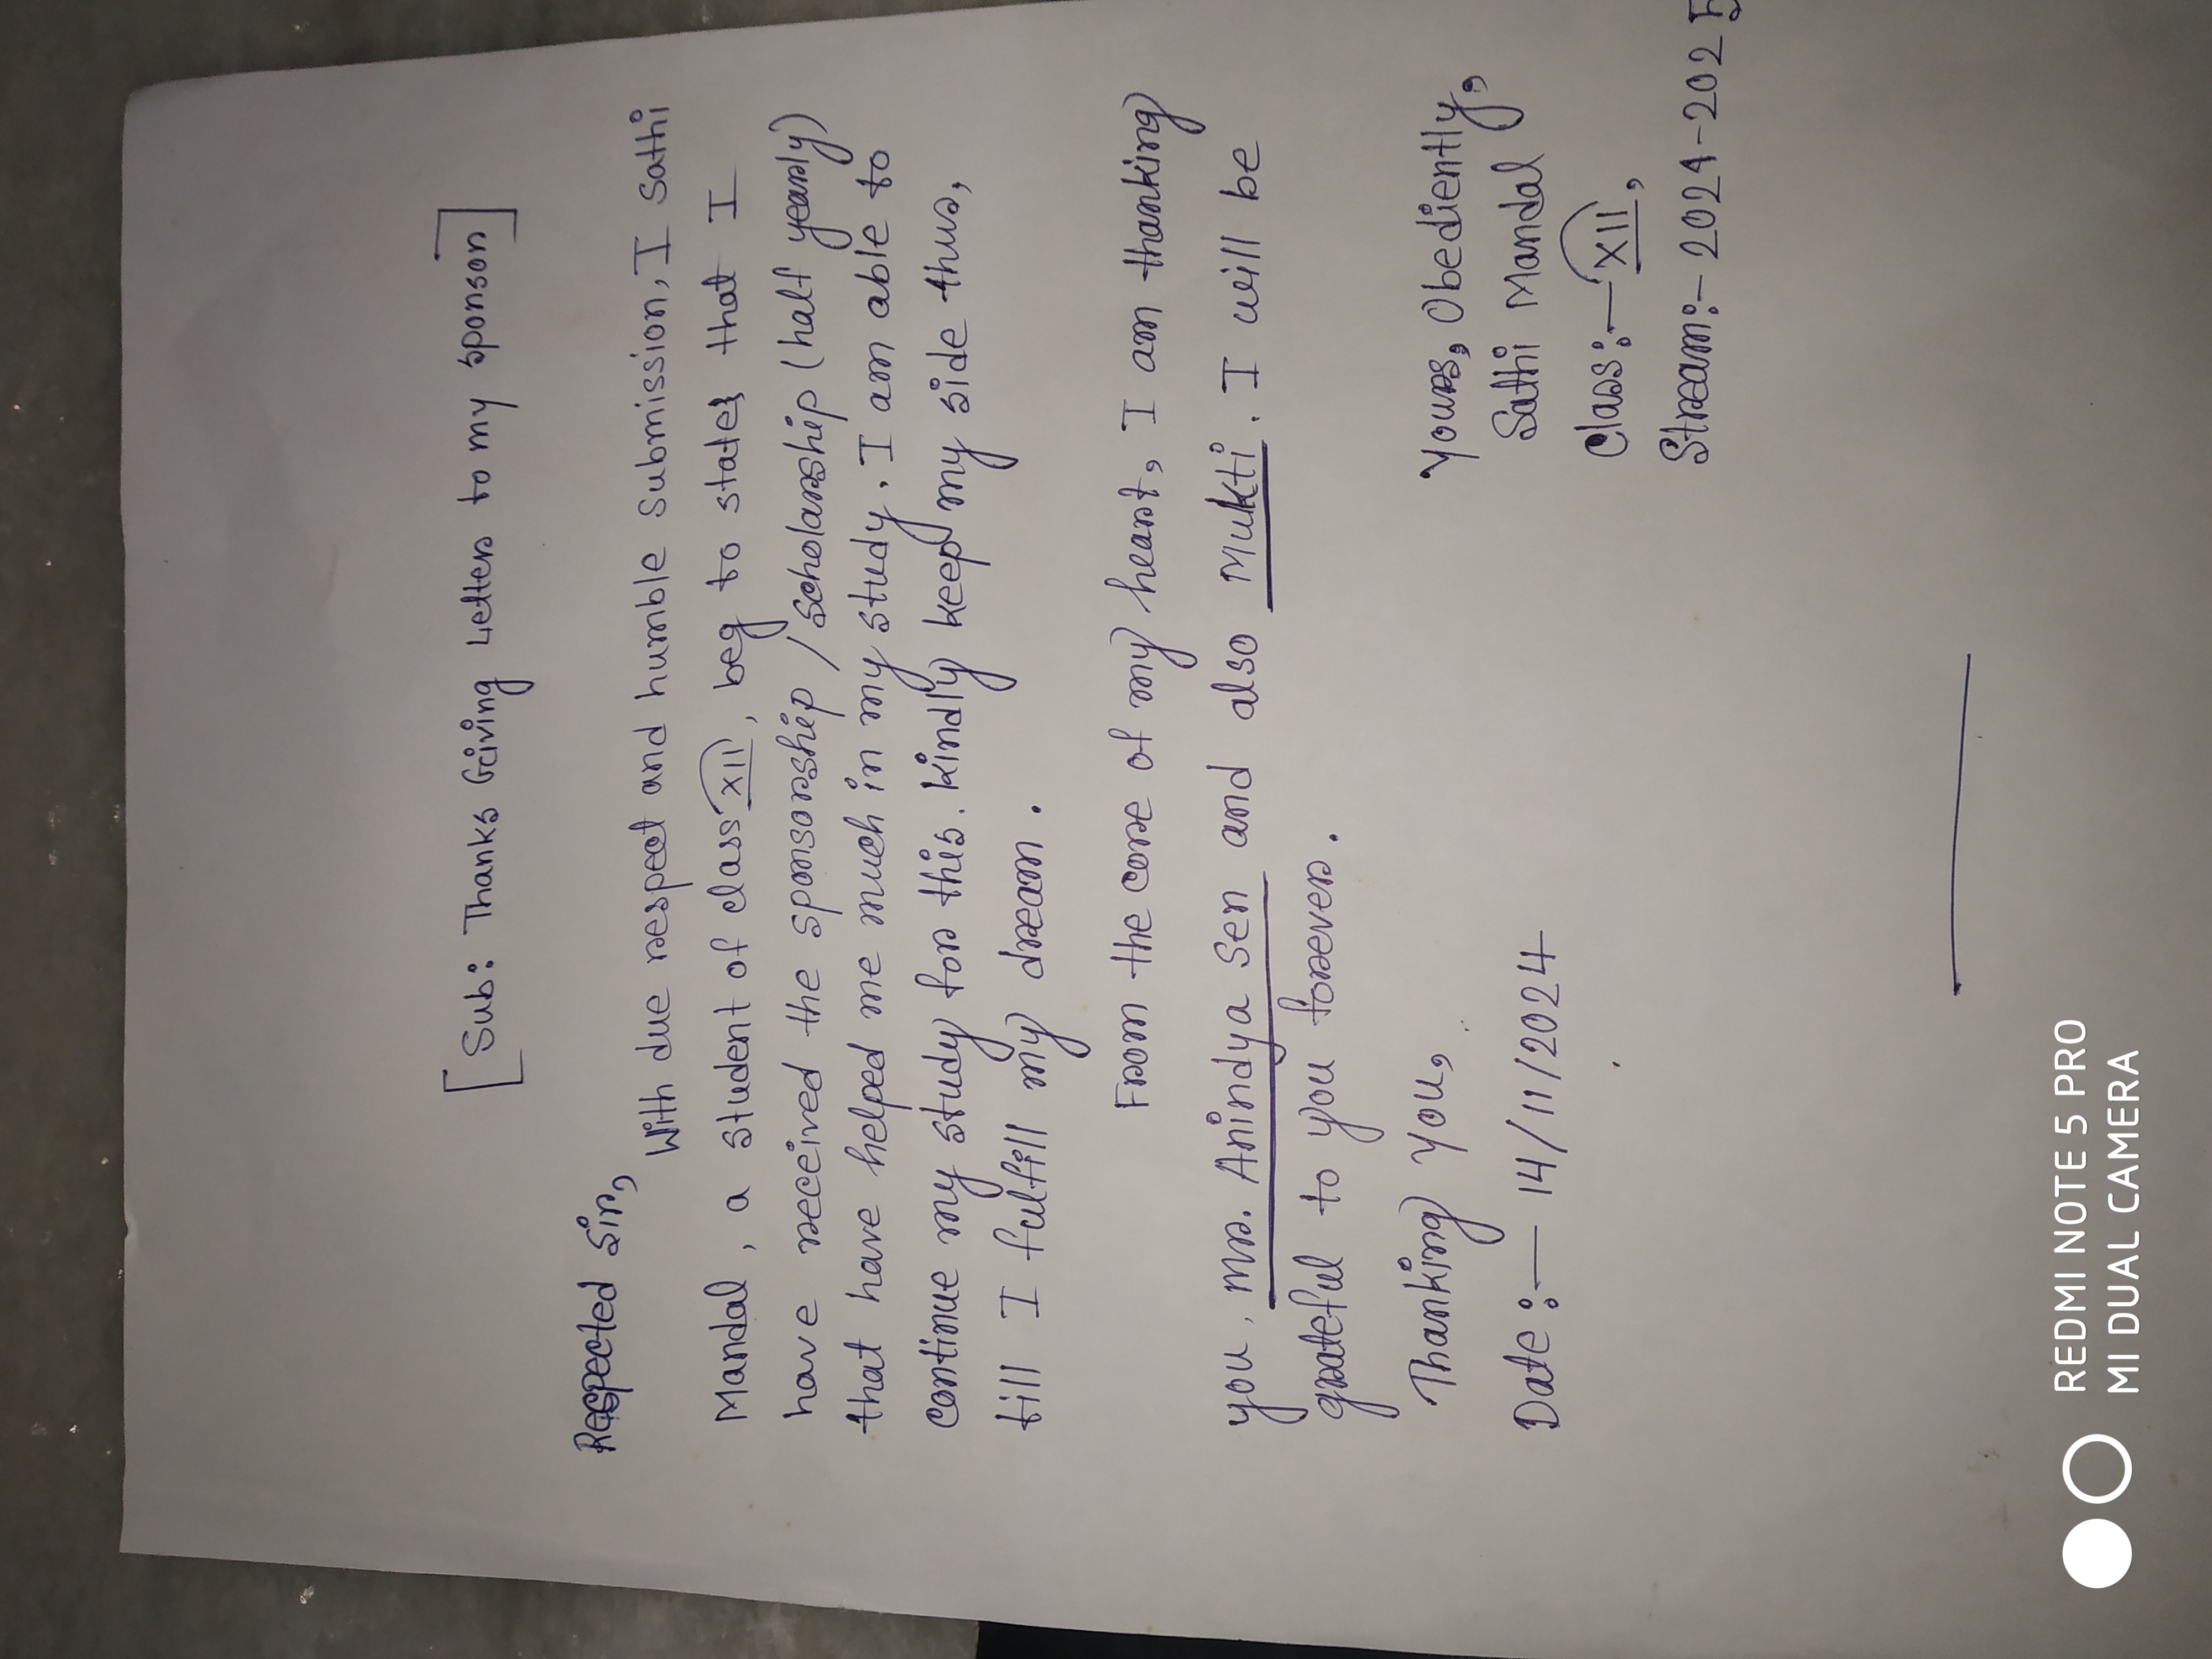 [Sub: Thanks Giving Letter to my sponsor]
Respected Sir,
With due respect and humble submission, I Sathi
Mandal, a student of class XII, beg to states that I
have received the sponsorship / scholarship (half yearly)
that have helped me much in my study. I am able to
continue my study for this. kindly keep my side thus,
till I fulfill my dream.
From the core of my heart, I am thanking
you, Mr. Anindya Sen and also Mukti. I will be
grateful to you forever.
Thanking You,
Date:- 14/11/2024
Yours, Obediently,
Sathi Mandal
Class:- XII,
Stream:- 2024-2025
REDMI NOTE 5 PRO
MI DUAL CAMERA